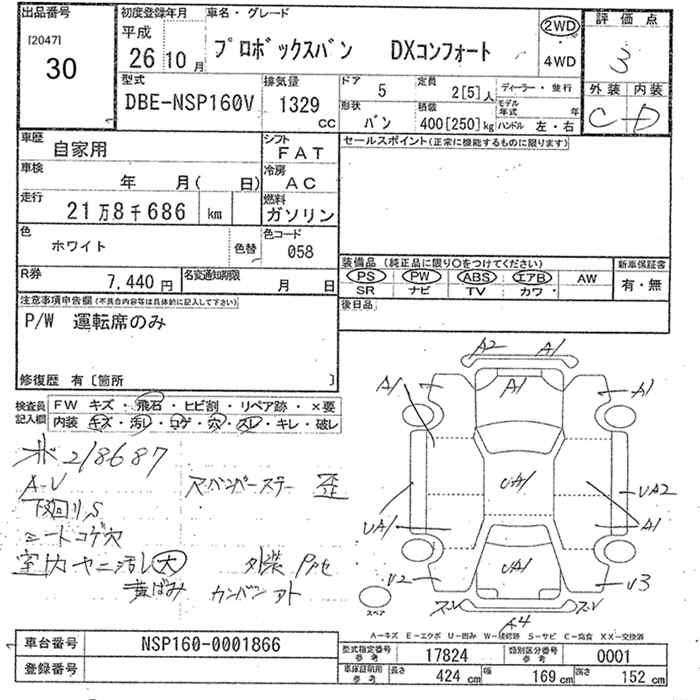 出品番号
[2047]
30
初度登録年月
平成
26 10 月
車名・グレード
プロボックスバン DXコンフォート
2WD
4WD
評価点
3
外装 内装
C D
型式
DBE-NSP160V
排気量
1329 CC
ドア
5
定員
2[5]人
形状
バン
積載
400[250]kg
ディーラー・並行
モデル年式 年
ハンドル 左・右
車歴
自家用
シフト
FAT
セールスポイント(正常に機能するものに限ります)
車検
年 月( 日)
冷房
AC
走行
21万8千686 km
燃料
ガソリン
色
ホワイト
色替
色コード
058
装備品(純正品に限り○をつけてください)
PS PW ABS エアB AW
SR ナビ TV カワ・
新車保証書
有・無
R券
7,440 円
名変通知期限
月 日
後日品
注意事項申告欄(不具合内容等は具体的に記入して下さい)
P/W 運転席のみ
修復歴 有〔箇所 〕
検査員記入欄
FW キズ・飛石・ヒビ割・リペア跡・×要
内装・キズ・汚レ・コゲ・穴・スレ・キレ・破レ
218687
A-V
下廻りS
シートコゲ穴
室内ヤニ汚レ大
黄ばみ
カンバンアト
バンパーステー 歪
外装
A2 A1
A1 A1 A1
UA1
UA1 UA2
A1
UA1
U2 U3
A4
スペア
A－キズ E－エクボ U－凹み W－補修跡 S－サビ C－腐食 XX－交換済
車台番号
NSP160-0001866
登録番号
型式指定番号 参考
17824
類別区分番号 参考
0001
車庫証明用 参考
長さ 424 cm
幅 169 cm
高さ 152 cm